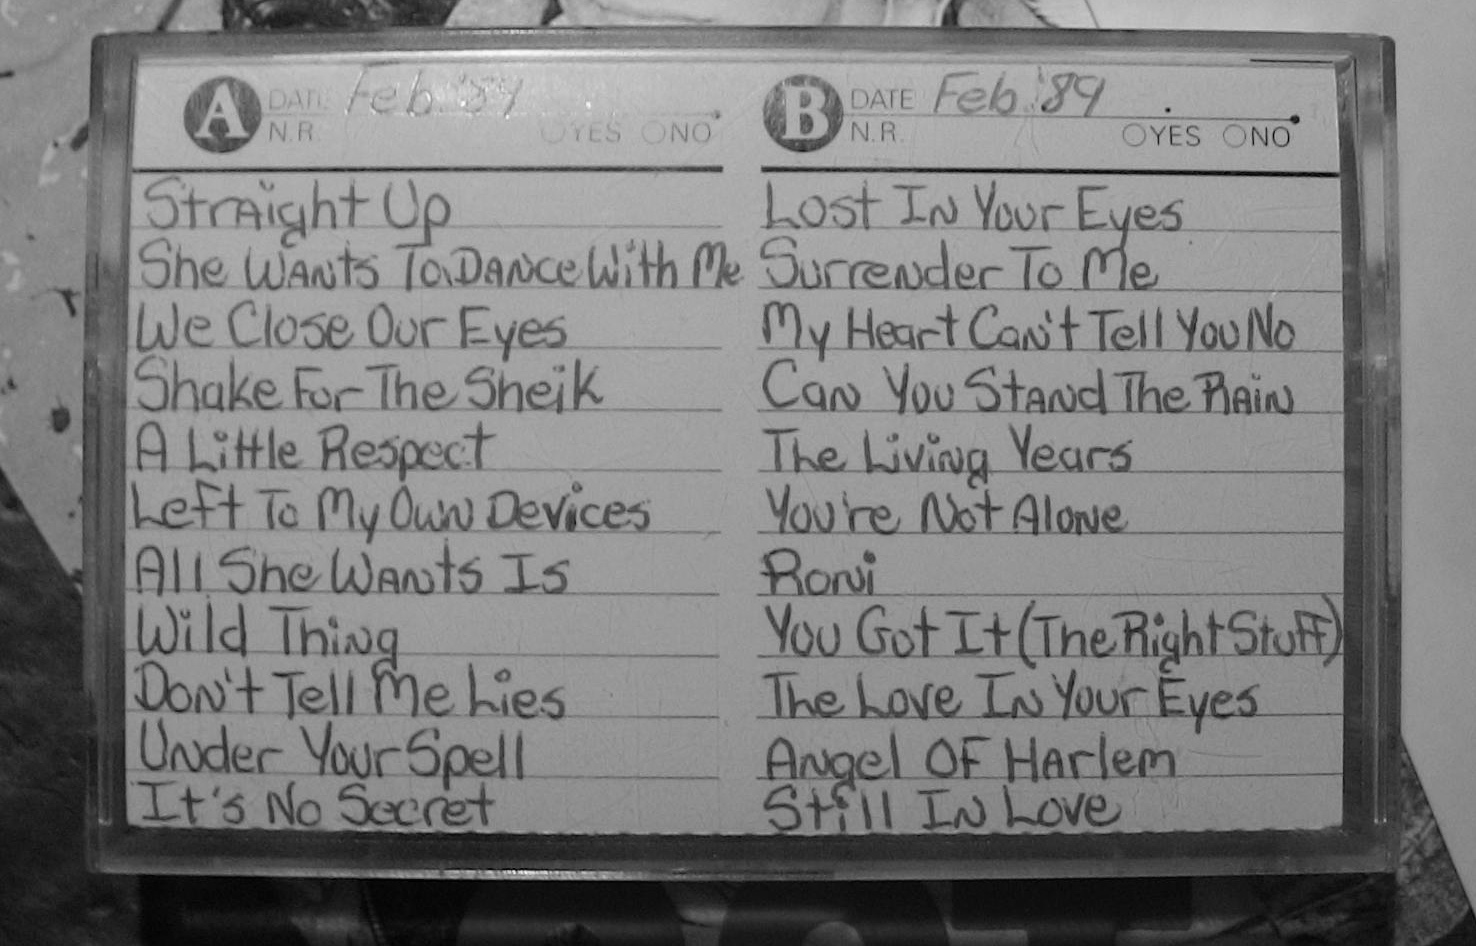 A DATE Feb. '89
N.R. YES NO
Straight Up
She Wants To Dance With Me
We Close Our Eyes
Shake For The Sheik
A Little Respect
Left To My Own Devices
All She Wants Is
Wild Thing
Don't Tell Me Lies
Under Your Spell
It's No Secret
B DATE Feb. '89
N.R. YES NO
Lost In Your Eyes
Surrender To Me
My Heart Can't Tell You No
Can You Stand The Rain
The Living Years
You're Not Alone
Roni
You Got It (The Right Stuff)
The Love In Your Eyes
Angel Of Harlem
Still In Love